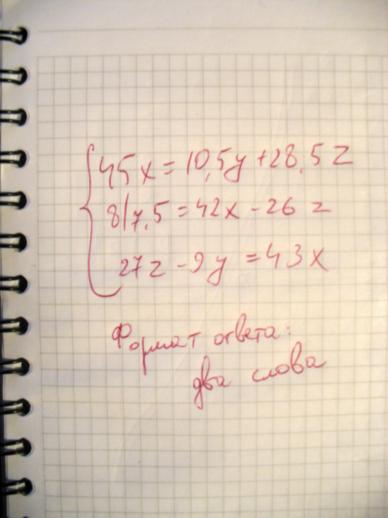 45x = 10,5y + 28,5z
817,5 = 42x - 26z
27z - 9y = 43x
Формат ответа:
два слова